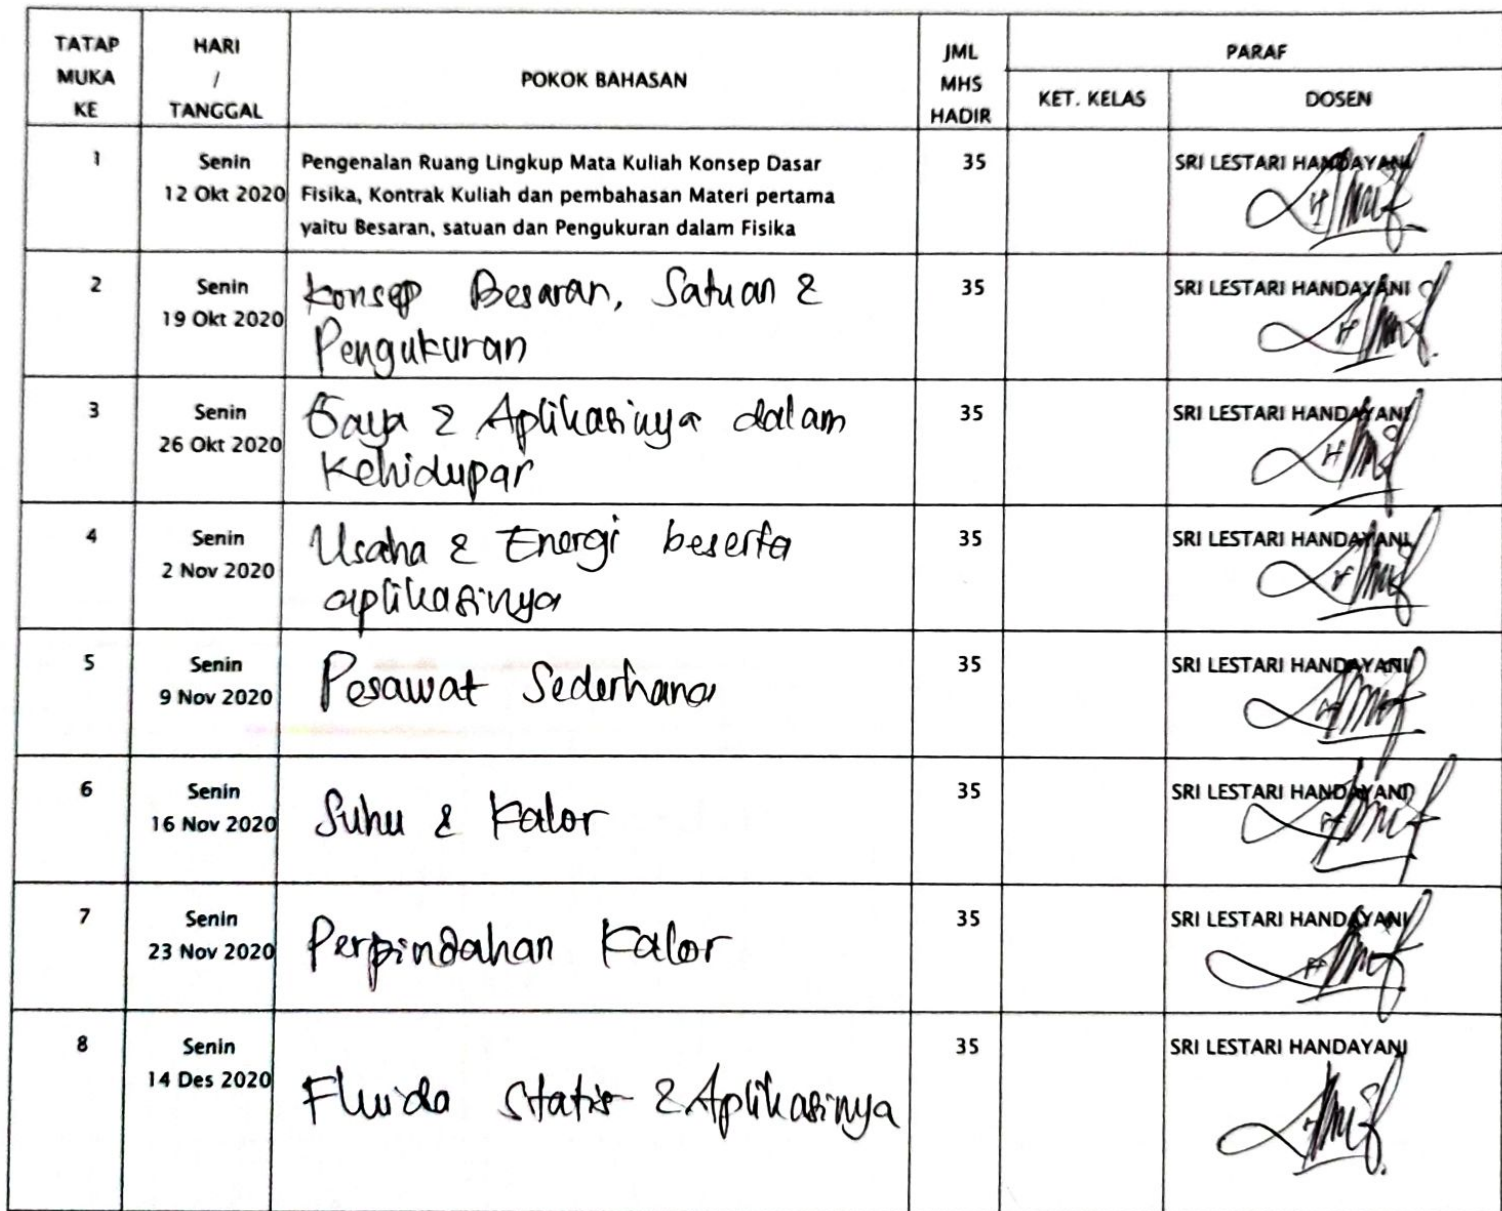 TATAP MUKA KE HARI / TANGGAL POKOK BAHASAN JML MHS HADIR PARAF
KET. KELAS DOSEN
1 Senin 12 Okt 2020 Pengenalan Ruang Lingkup Mata Kuliah Konsep Dasar 35 SRI LESTARI HANDAYANI
Fisika, Kontrak Kuliah dan pembahasan Materi pertama
yaitu Besaran, satuan dan Pengukuran dalam Fisika
2 Senin 19 Okt 2020 Konsep Besaran, Satuan & 35 SRI LESTARI HANDAYANI
Pengukuran
3 Senin 26 Okt 2020 Gaya & Aplikasinya dalam 35 SRI LESTARI HANDAYANI
Kehidupan
4 Senin 2 Nov 2020 Usaha & Energi beserta 35 SRI LESTARI HANDAYANI
aplikasinya
5 Senin 9 Nov 2020 Pesawat Sederhana 35 SRI LESTARI HANDAYANI
6 Senin 16 Nov 2020 Suhu & Kalor 35 SRI LESTARI HANDAYANI
7 Senin 23 Nov 2020 Perpindahan Kalor 35 SRI LESTARI HANDAYANI
8 Senin 14 Des 2020 Fluida Statis & Aplikasinya 35 SRI LESTARI HANDAYANI